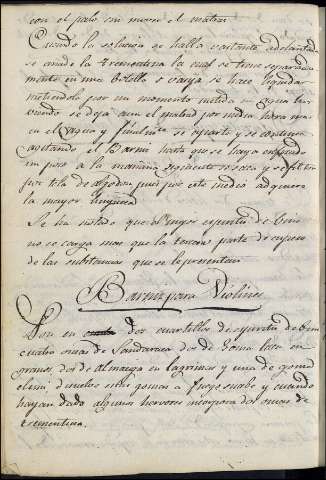 con el palo sin mover el matraz
Cuando la solucion se halla bastante adelantada
se anade la trementina la cual se tiene separada
mente en una botella o vasija se hace liquidar
metiendola por un momento metida en agua hir
viendo se deja aun el matraz por media hora mas
en el agua y finalmte se aparta y se continua
agitando el Barniz hasta que se haya enfriado
un poco a la mañana siguiente se saca y se filtra
por tela de algodon pues por este medio adquiere
la mayor limpieza
Se ha notado que el mejor espiritu de bino
no se carga mas que la tercera parte de su peso
de las substancias que se le presentan
Barniz para Violines
Pon en dos cuartillos de espiritu de bino
cuatro onzas de Sandaraca dos de Goma laca en
granos dos de Almaciga en lagrimas y una de goma
elemi disuelve estas gomas a fuego suabe y cuando
hayan dado algunos hervores incorpora dos onzas de
trementina.